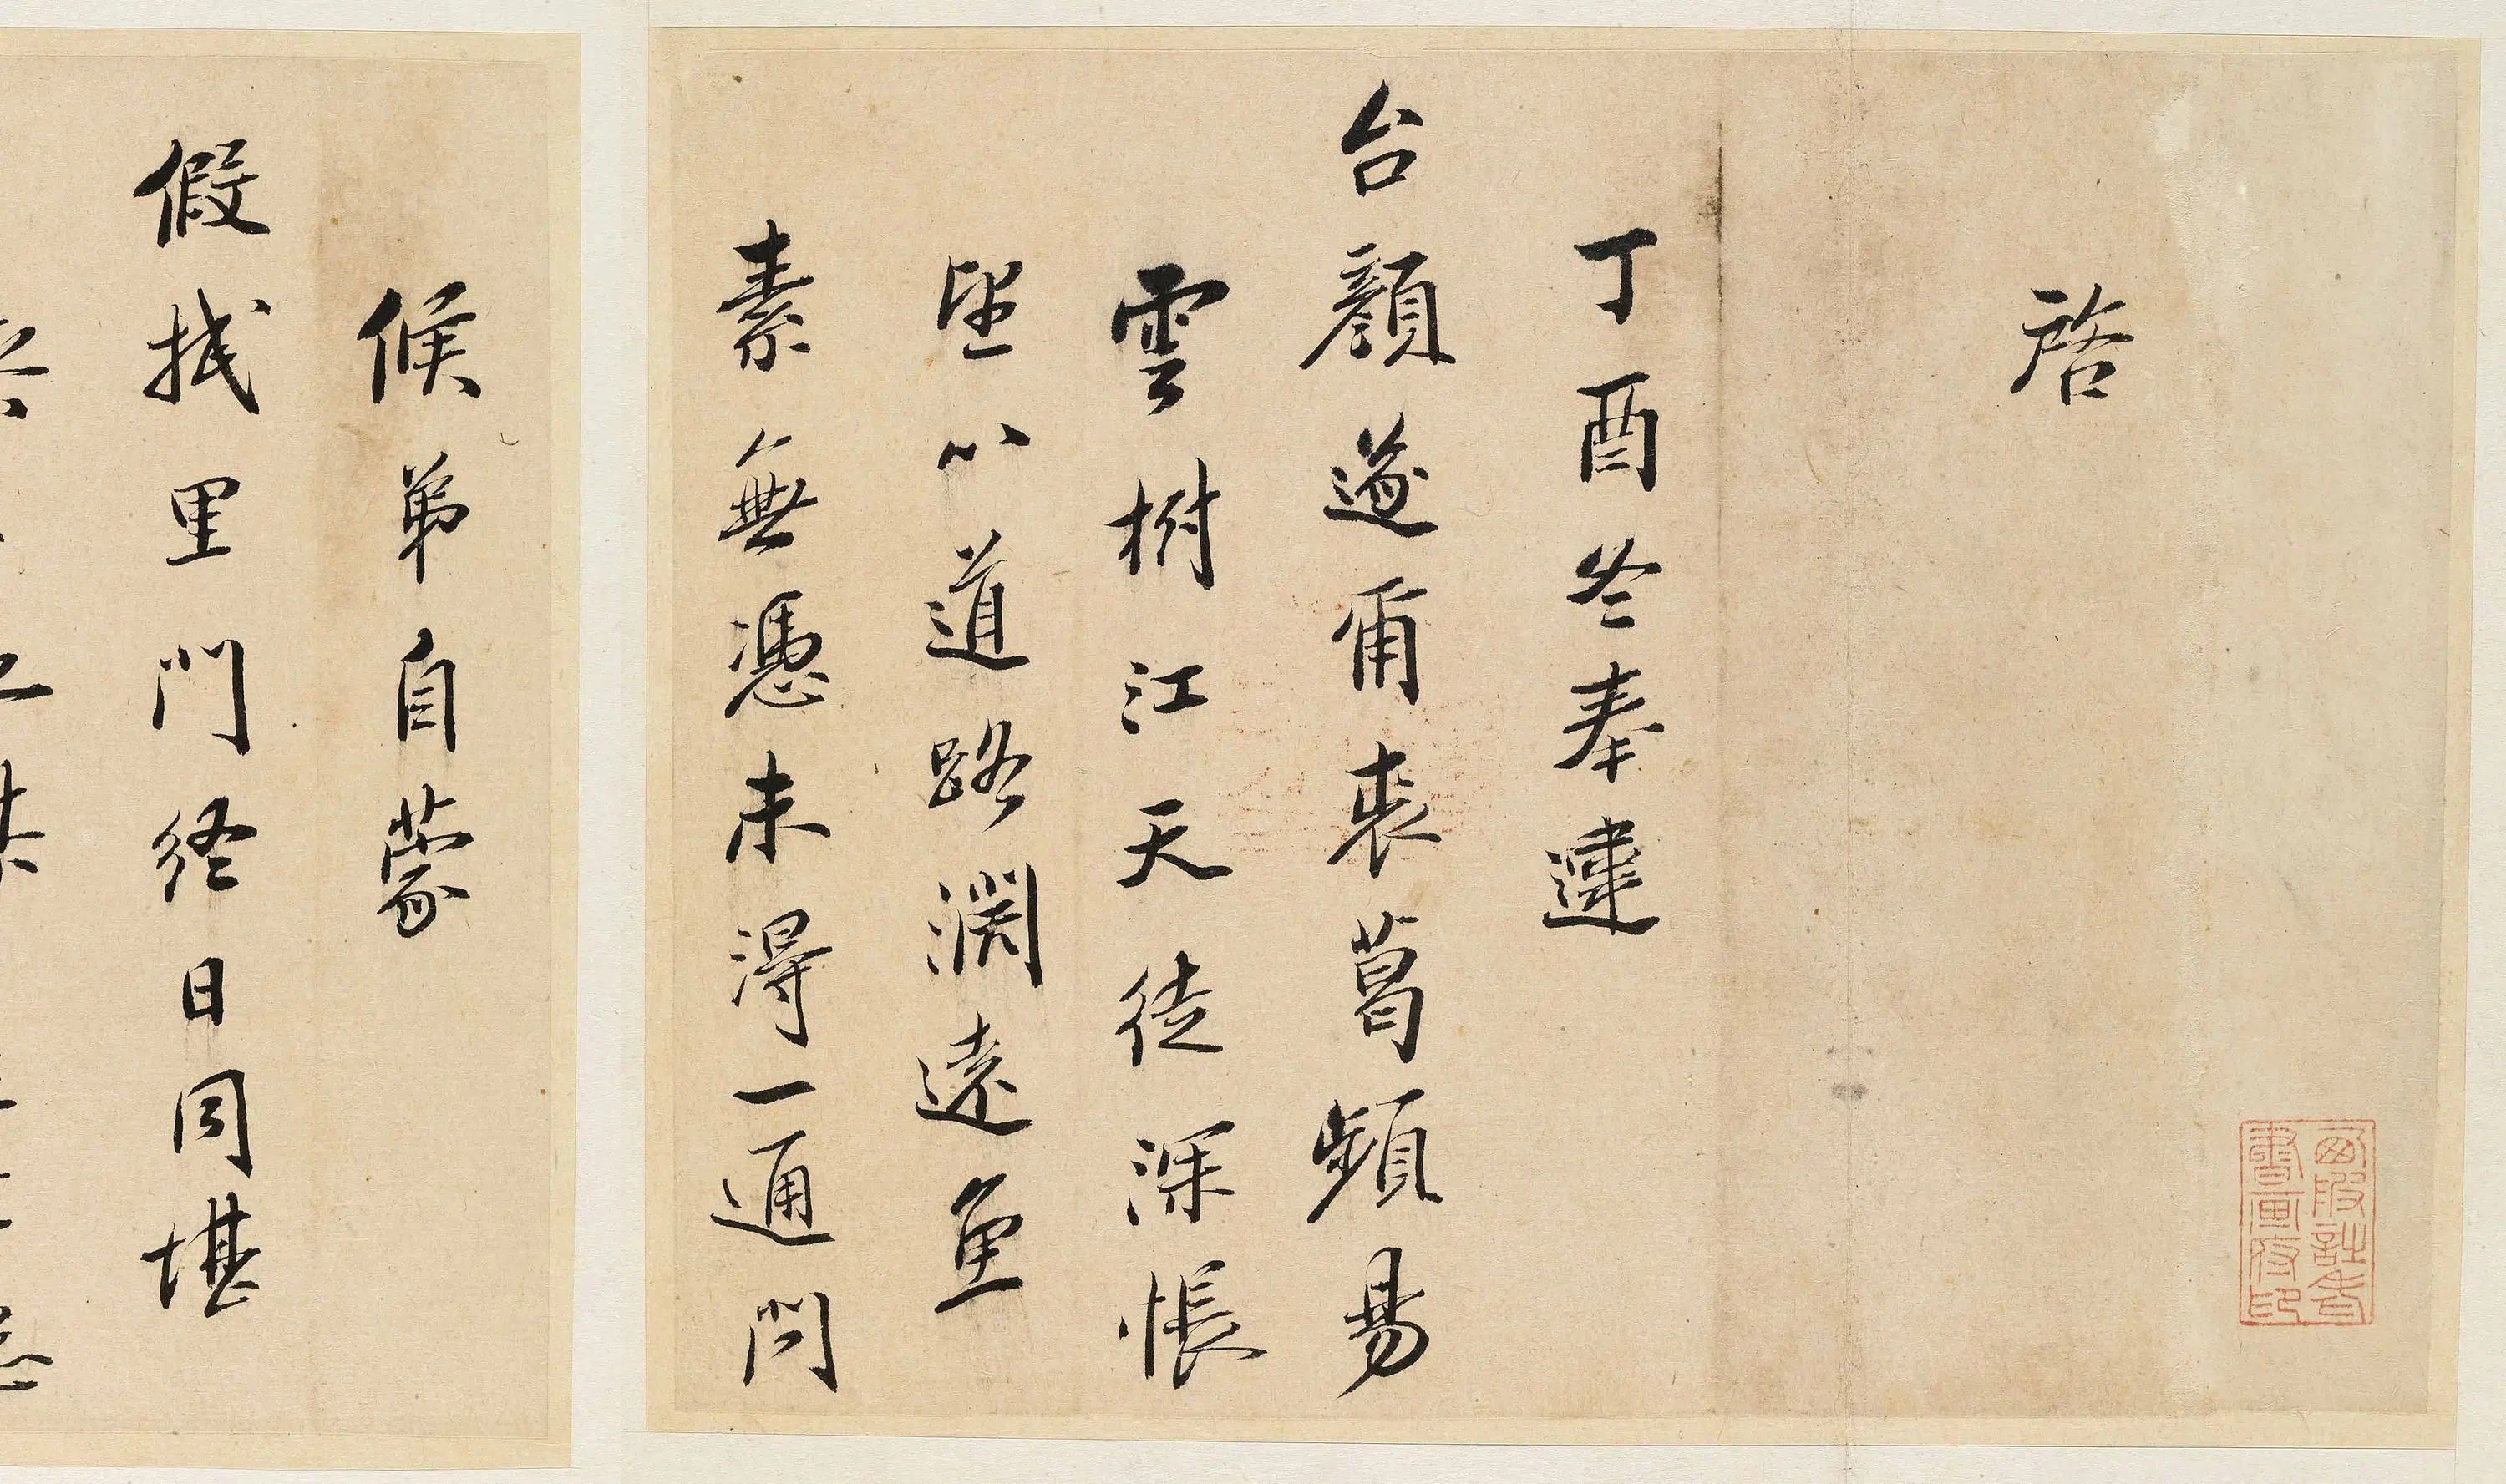 啓
丁酉冬奉違
台顏遂爾裘葛頻易
雲樹江天徒深悵
望以道路濶遠魚
素無憑未得一通問
候弟自蒙
假拭里門終日同堪
書畫府印